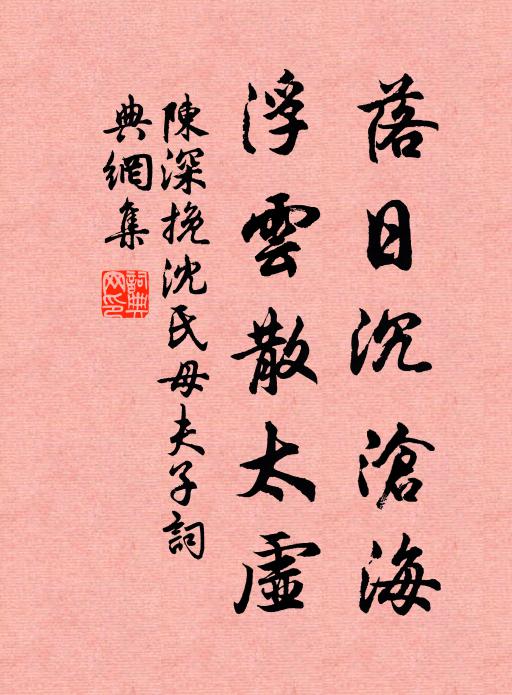 落日沉滄海
浮雲散太虛
陳深挽沈氏母夫子詞
典網集
詞典網印